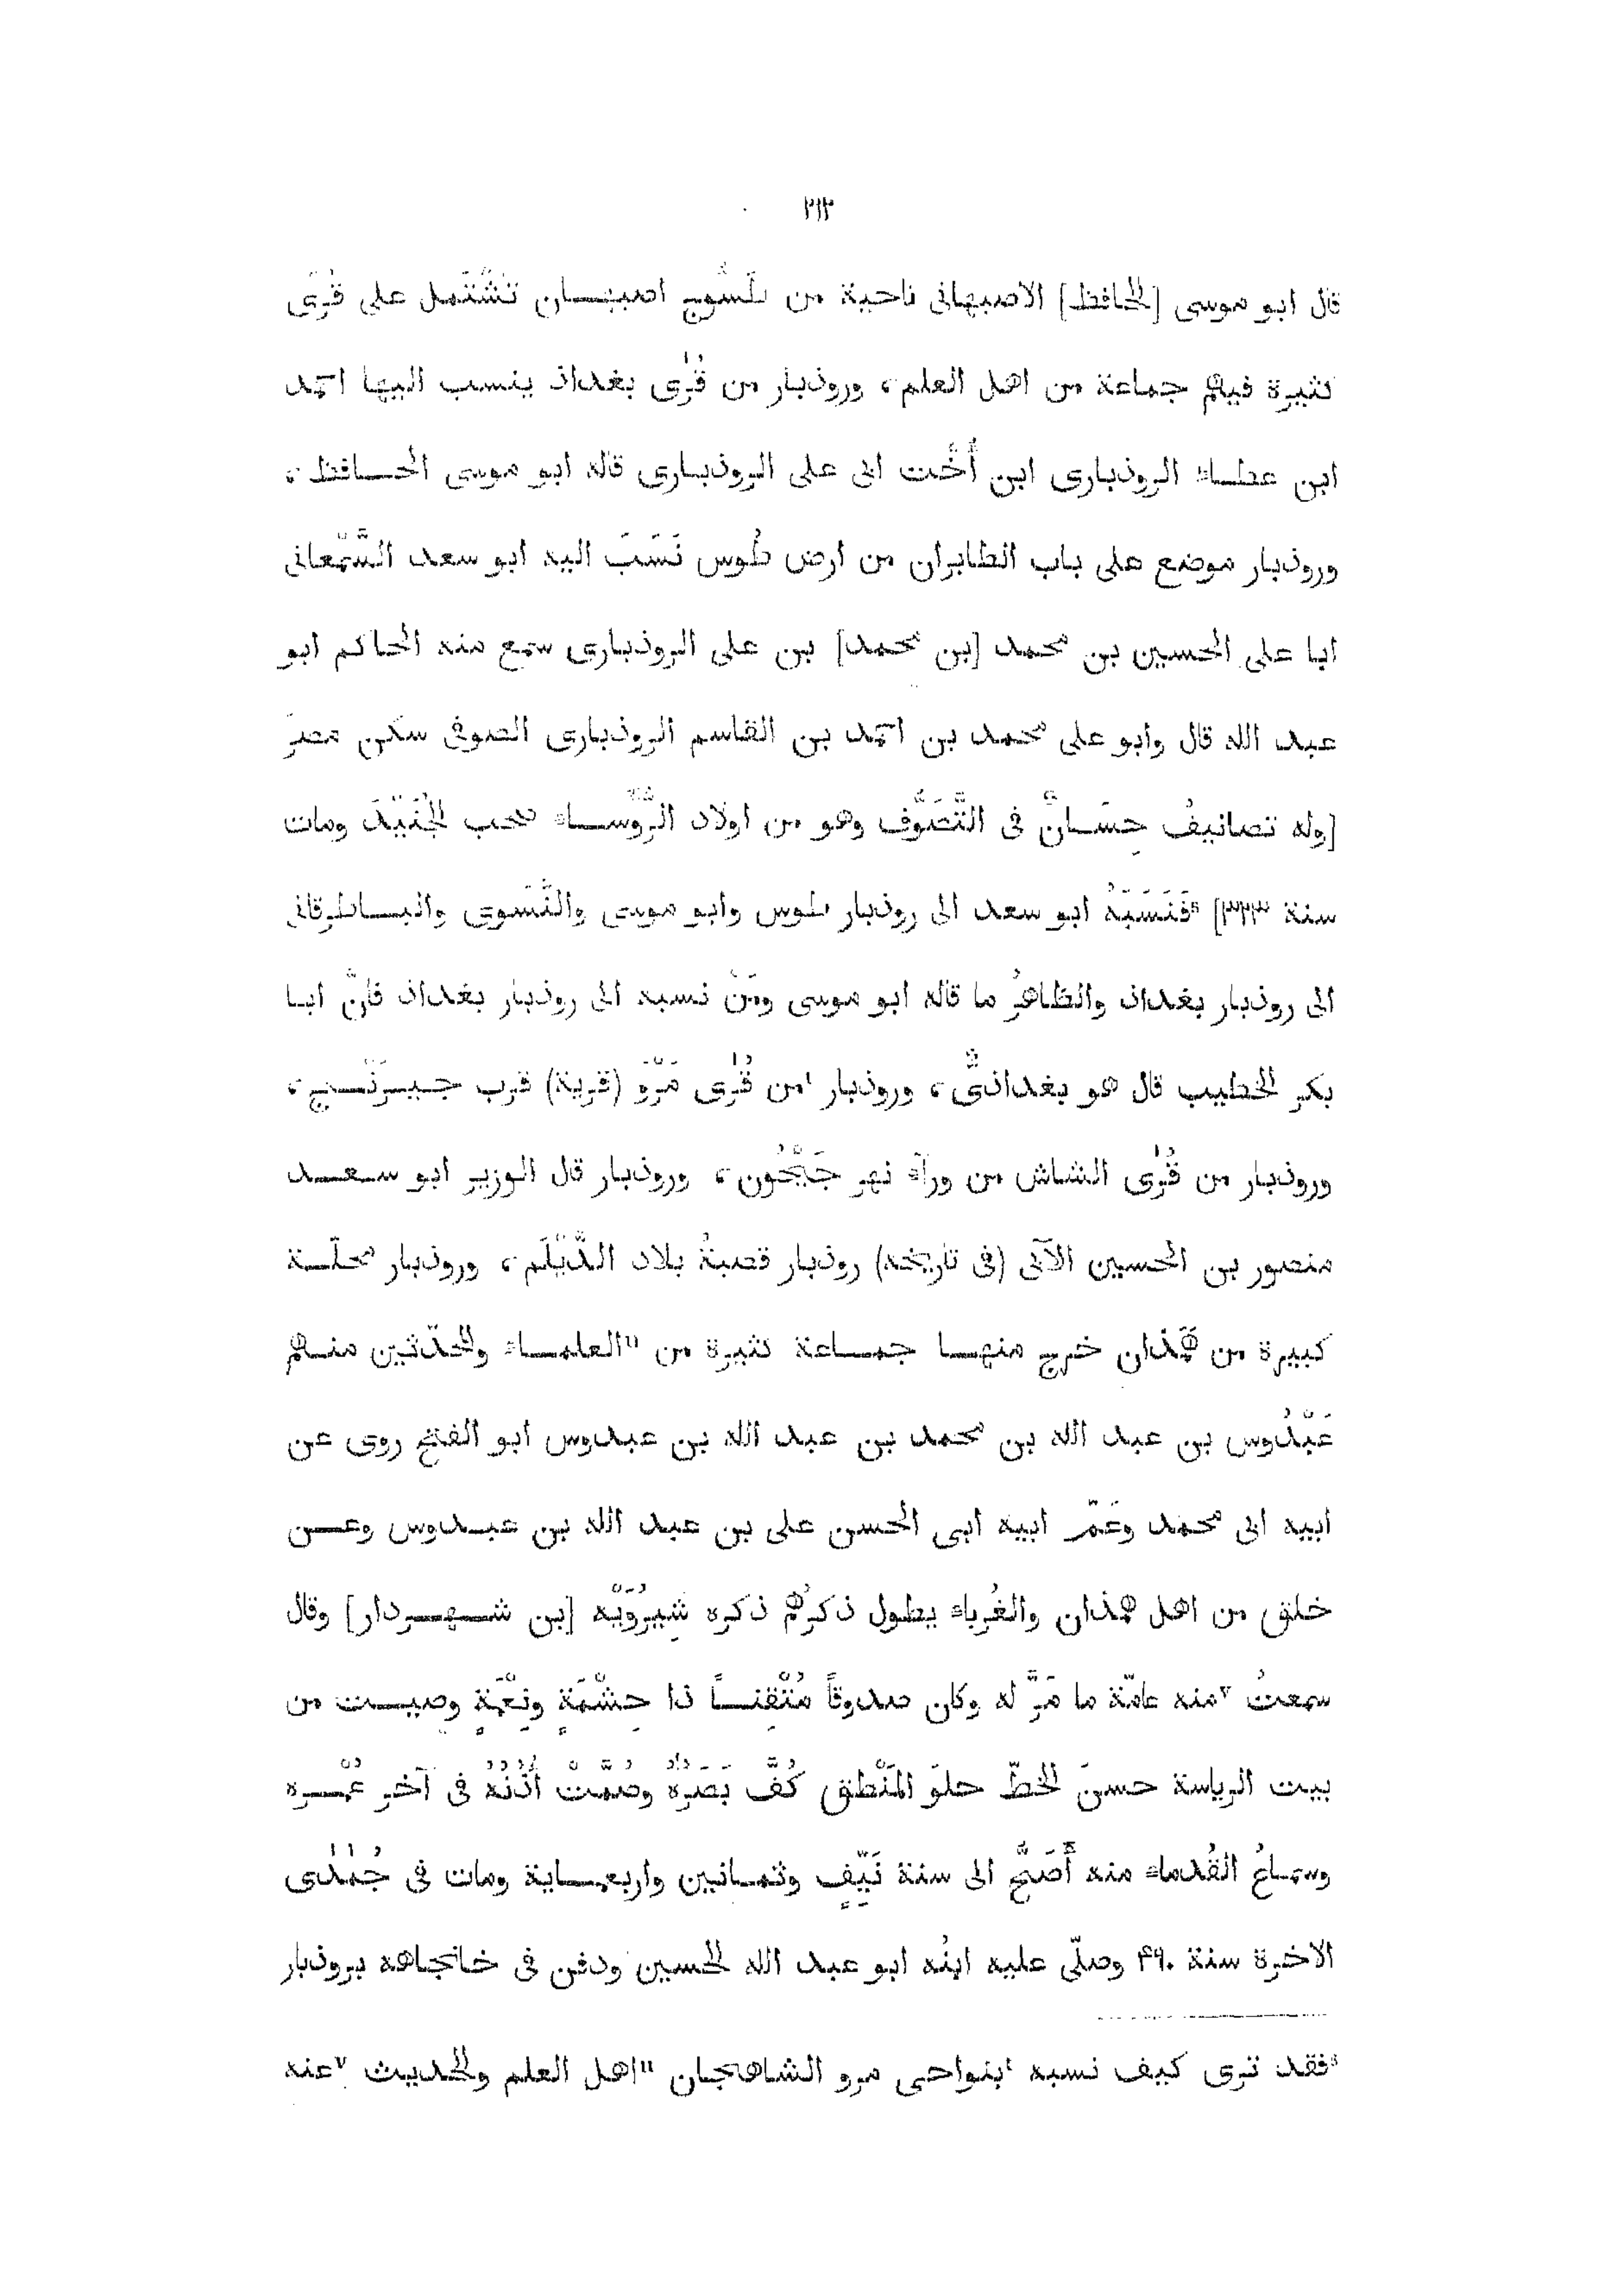 ٢١٣
قال ابو موسى [الحافظ] الاصبهانى ناحية من طَسُّوج اصبهان تَشْتَمل على قُرًى
كثيرة فيهم جماعة من اهل العلم، وروذبار من قُرٰى بغداد ينسب اليها احمد
ابن عطاء الروذبارى ابن أُخْت ابى على الروذبارى قاله ابو موسى الحافظ،
وروذبار موضع على باب الطابران من ارض طُوس نَسَبَ اليه ابو سعد السَّمْعانى
ابا على الحسين بن محمد [بن محمد] بن على الروذبارى سمع منه الحاكم ابو
عبد الله قال وابو على محمد بن احمد بن القاسم الروذبارى الصوفى سكن مصرَ
[وله تصانيفُ حِسَانٌ فى التَّصَوُّف وهو من اولاد الرُّوَساء صحب الجُنَيْدَ ومات
سنة ٣٢٣] ⁵فَنَسَبَهُ ابو سعد الى روذبار طوس وابو موسى والنَّسَوى والباطرقانى
الى روذبار بغداد والظاهرُ ما قاله ابو موسى ومَنْ نسبه الى روذبار بغداد فانّ ابا
بكر الخطيب قال هو بغدادىٌّ، وروذبار ¹من قُرٰى مَرْوَ (قرية) قرب جيرَنْج،
وروذبار من قُرٰى الشاش من ورآء نهر جَيْحُون، وروذبار قال الوزير ابو سعد
منصور بن الحسين الآبى (فى تاريخه) روذبار قصبةُ بلاد الدَّيْلَم، وروذبار محلّة
كبيرة من هَمَذان خرج منها جماعة كثيرة من ¹¹العلماء والمحدّثين منهم
عَبْدُوس بن عبد الله بن محمد بن عبد الله بن عبدوس ابو الفتح روى عن
ابيه ابى محمد وعَمّ ابيه ابى الحسن على بن عبد الله بن عبدوس وعن
خلق من اهل همذان والغُرباء يطول ذكرُهم ذكره شِيرُوَيْه [بن شهردار] وقال
سمعتُ ⁷منه عامّة ما مَرَّ له وكان صدوقاً مُتْقِناً ذا حِشْمَةٍ ونِعْمَةٍ وصيت من
بيت الرياسة حسنَ الخطّ حلوَ المَنْطق كُفَّ بَصَرُهُ وصُمَّتْ أُذُنُهُ فى آخر عُمْره
وسماعُ القُدماء منه أَصَحُّ الى سنة نَيِّفٍ وثمانين واربعماية ومات فى جُمٰدٰى
الاخرة سنة ۴٩٠ وصلّى عليه ابنُه ابو عبد الله الحسين ودفن فى خانجاهه بروذبار
⁵فقد ترى كيف نسبه ¹بنواحى مرو الشاهجان ¹¹اهل العلم والحديث ⁷عنه